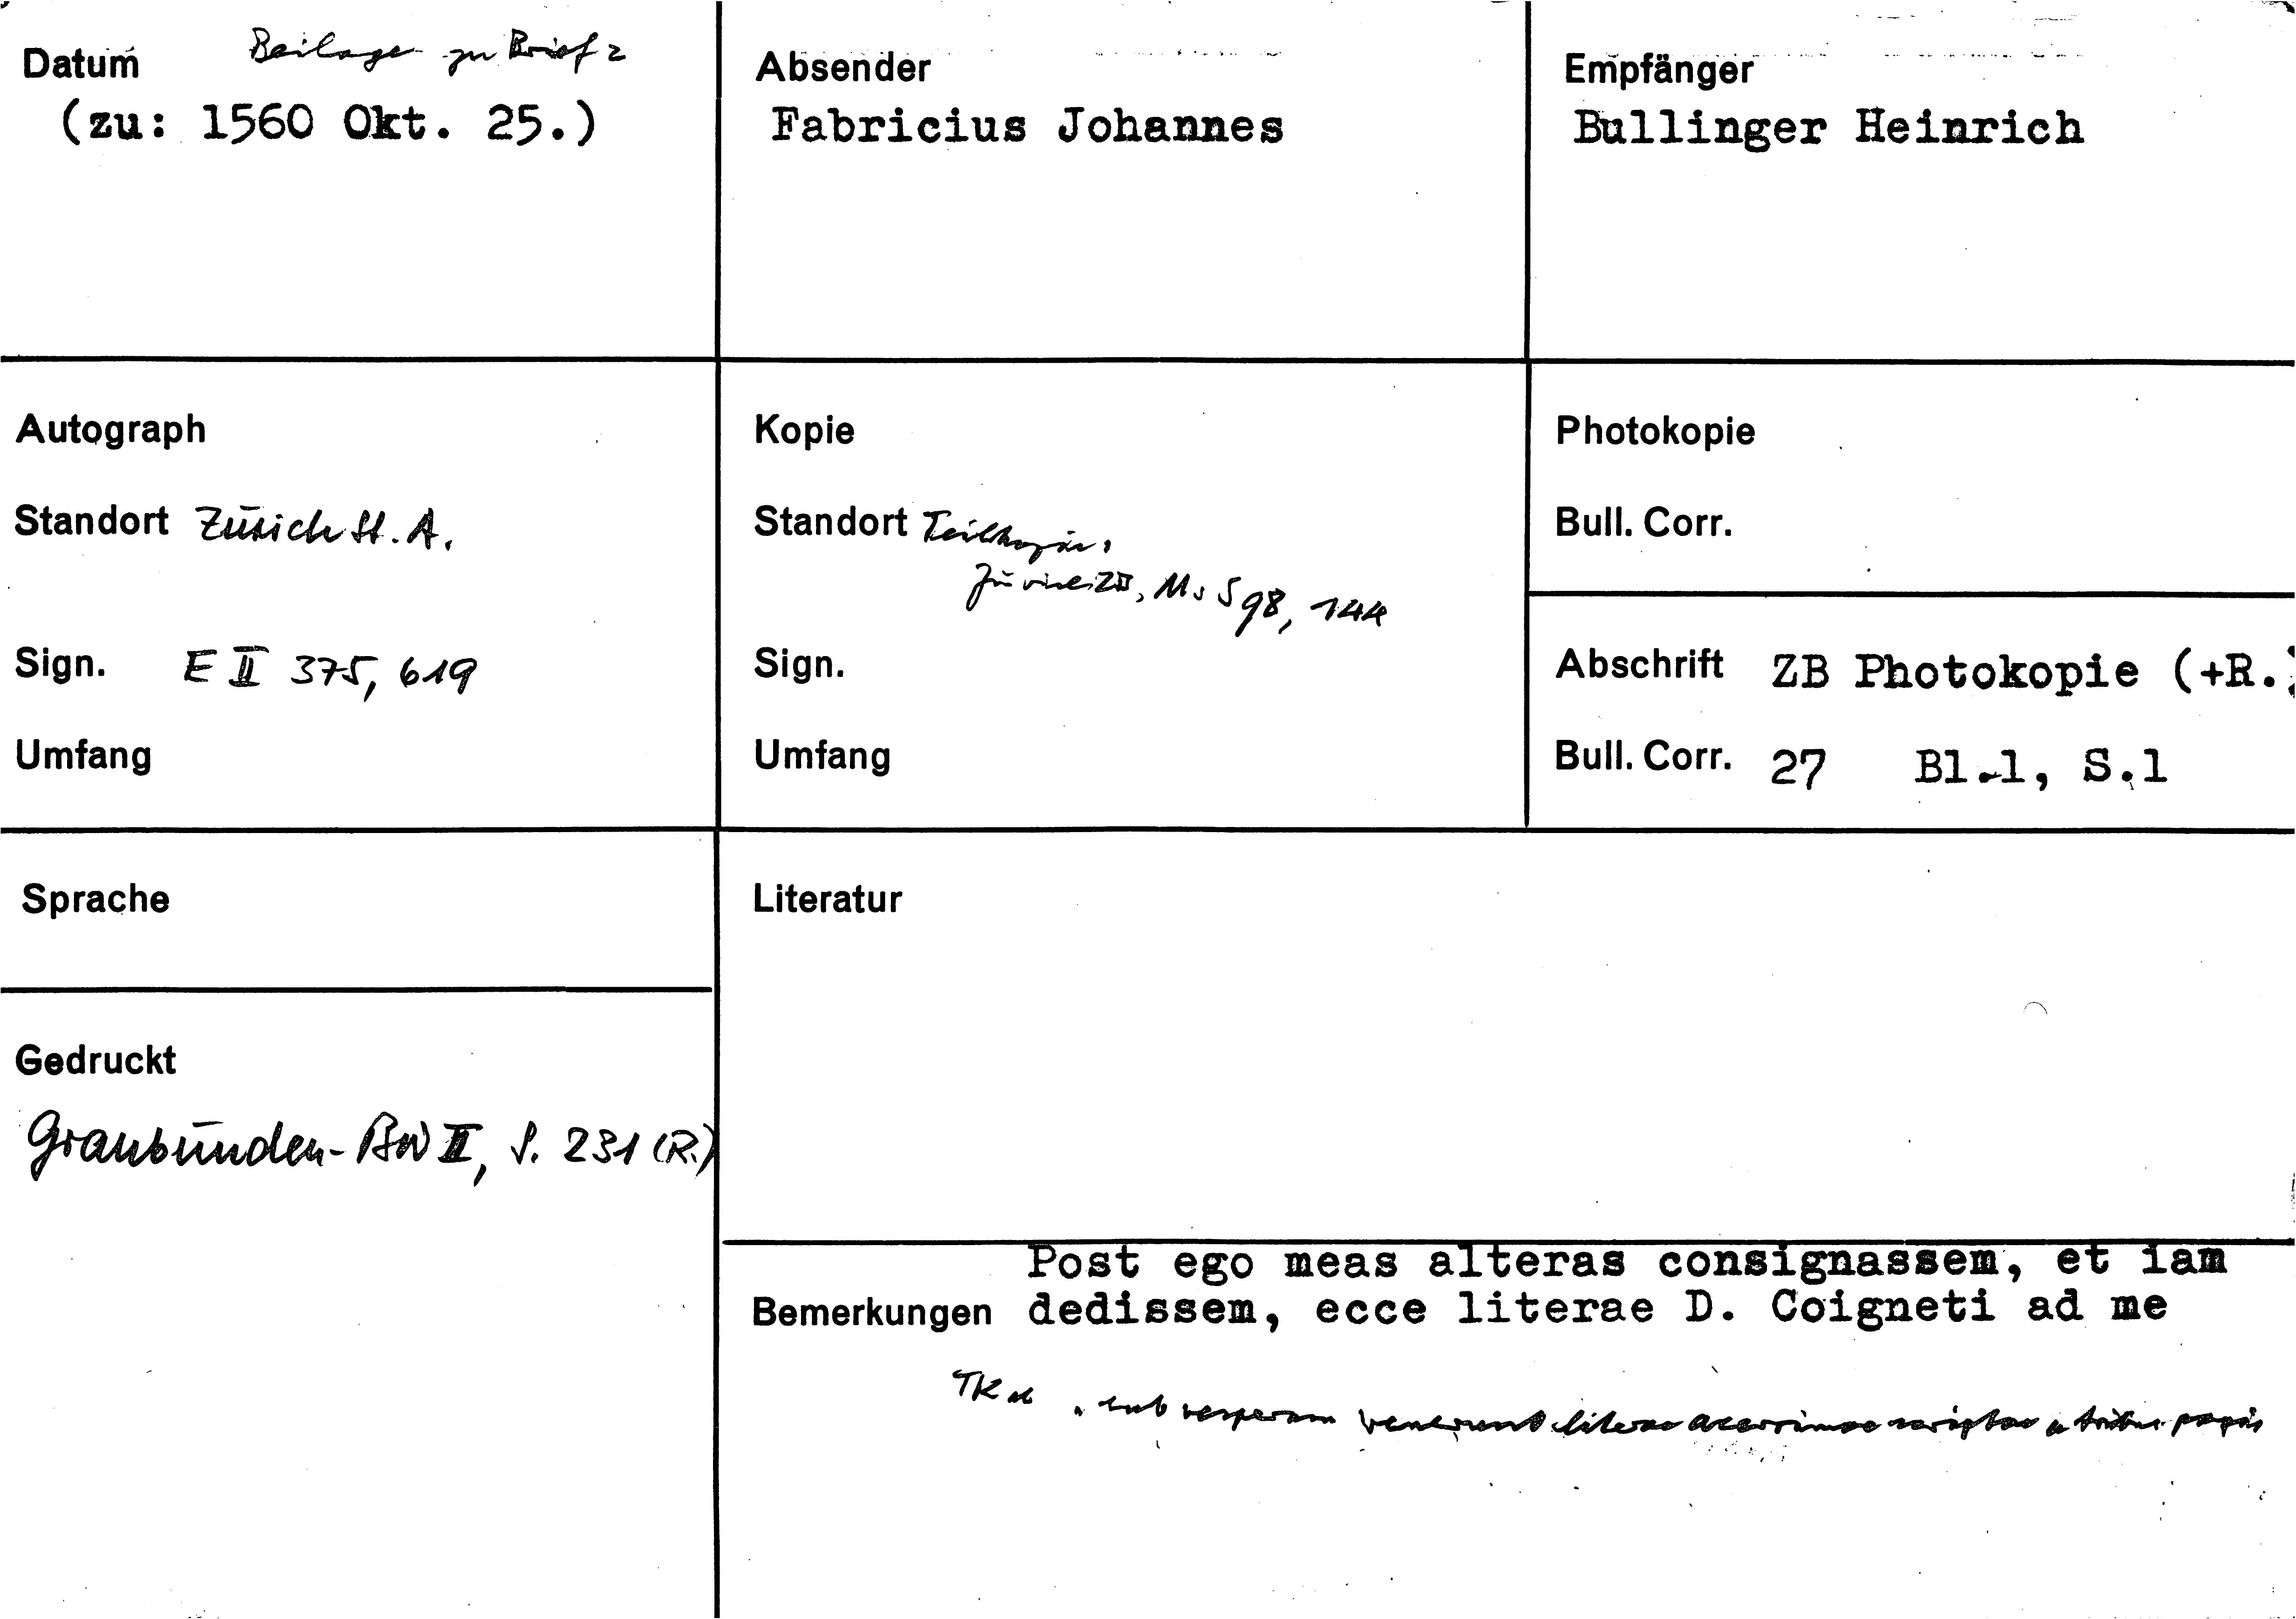 Datum Beilage zu Brief 2
(zu: 1560 Okt. 25.)
Absender
Fabricius Johannes
Empfänger
Bullinger Heinrich
Autograph
Standort Zürich St. A.
Sign. E II 375, 619
Umfang
Kopie
Standort Teilkopie:
Zürich ZB, Ms S 98, 144
Sign.
Umfang
Photokopie
Bull. Corr.
Abschrift ZB Photokopie (+R.)
Bull. Corr. 27 Bl.1, S.1
Sprache
Gedruckt
Graubünden-BW II, S. 231 (R.)
Literatur
Post ego meas alteras consignassem, et iam
Bemerkungen dedissem, ecce literae D. Coigneti ad me
TK sub vesperam venerunt literae acerrimae scriptae a tribus pagis